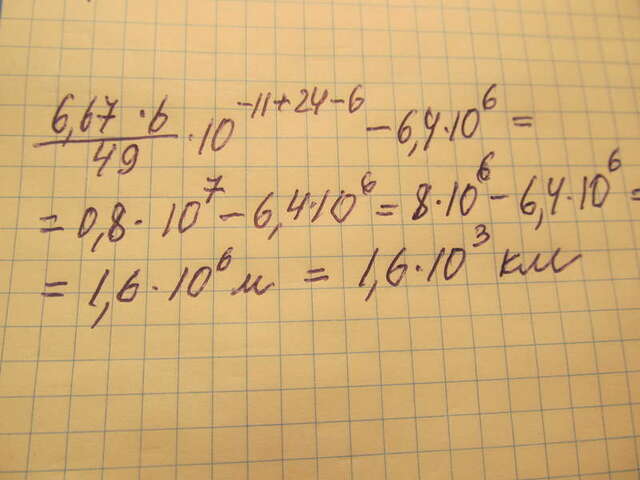 6,67 · 6 / 49 · 10^{-11+24-6} - 6,4·10^6 =
= 0,8 · 10^7 - 6,4·10^6 = 8·10^6 - 6,4·10^6 =
= 1,6 · 10^6 м = 1,6·10^3 км